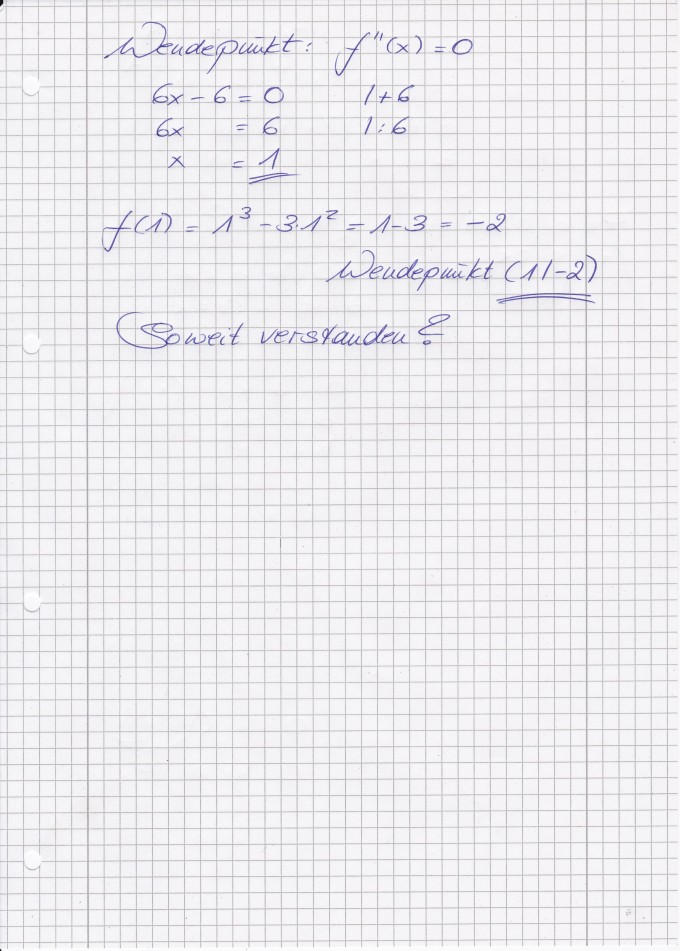 Wendepunkt: f''(x) = 0
6x - 6 = 0 |+6
6x = 6 |:6
x = 1
f(1) = 1³ - 3·1² = 1 - 3 = -2
Wendepunkt (1|-2)
Soweit verstanden?